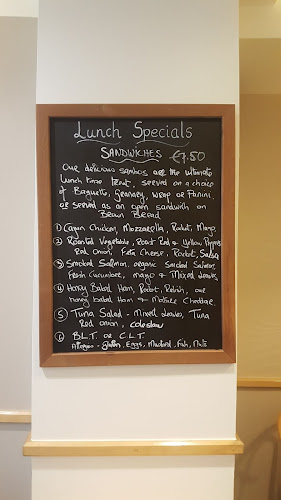 Lunch Specials
SANDWICHES €7.50
Our delicious sambos are the ultimate
Lunch time treat, served on a choice
of Baguette, Granary, wrap or Panini,
or served as an open sandwich on
Brown Bread.
1) Cajun Chicken, Mozzarella, Rocket, Mayo.
2 Roasted Vegetable, Roast Red & Yellow Peppers
Red onion, Feta Cheese, Rocket, Salsa
3) Smoked Salmon, organic Smoked Salmon,
Fresh Cucumber, mayo & Mixed Leaves.
4) Honey Baked Ham, Rocket, Relish, our
honey baked Ham & Mature Cheddar.
5 Tuna Salad - Mixed Leaves, Tuna
Red onion, coleslaw
6 B.L.T. or C.L.T.
Allergens - Gluten, Eggs, Mustard, Fish, Nuts